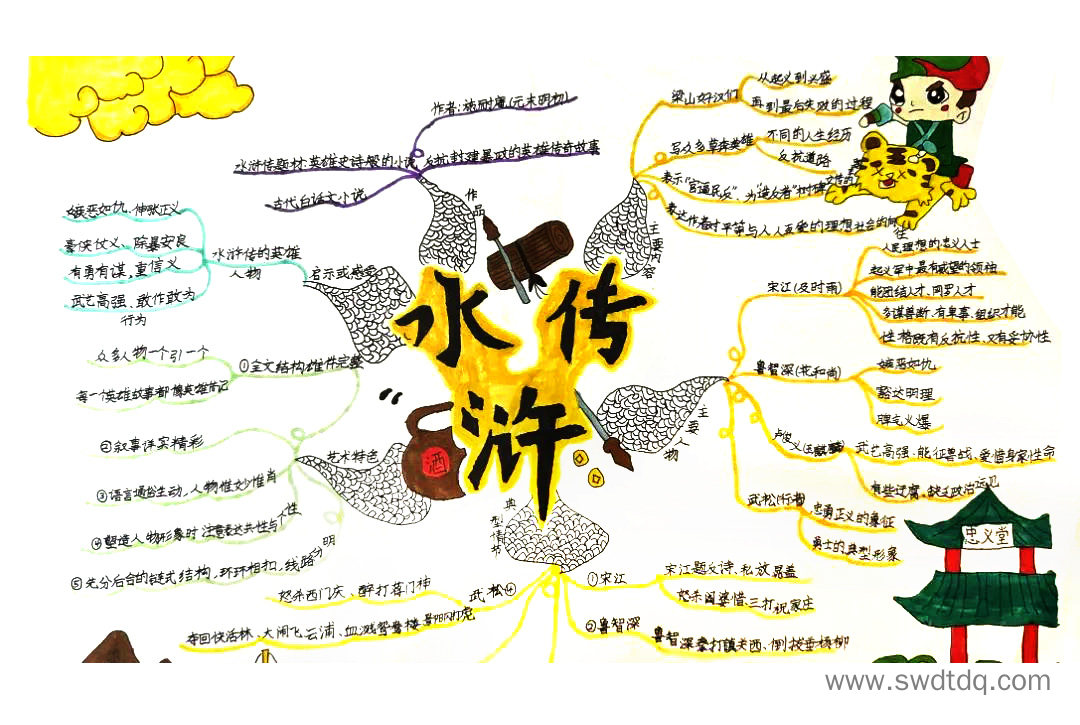 水浒传
作品
作者:施耐庵(元末明初)
水浒传题材:英雄史诗般的小说 反抗封建暴政的英雄传奇故事
古代白话文小说
主要内容
梁山好汉们
从起义到兴盛
再到最后失败的过程
写众多草莽英雄
不同的人生经历
反抗道路
表达作者对平等与人人互爱的理想社会的向往
主要人物
宋江(及时雨)
人民理想的忠义人士
起义军中最有威望的领袖
能团结人才、网罗人才
多谋善断、有卓事、组织才能
性格既有反抗性、又有妥协性
鲁智深(花和尚)
嫉恶如仇
豁达明理
脾气火爆
卢俊义(玉麒麟)
武艺高强、能征善战、爱惜身家性命
有些迂腐、缺乏政治远见
武松(行者)
忠勇正义的象征
勇士的典型形象
典型情节
①宋江
宋江题反诗、私放晁盖
怒杀阎婆惜、三打祝家庄
②鲁智深
鲁智深拳打镇关西、倒拔垂杨柳
武松④
怒杀西门庆、醉打蒋门神
夺回快活林、大闹飞云浦、血溅鸳鸯楼 景阳冈打虎
艺术特色
①全文结构雄伟完整
众多人物一个引一个
每一個英雄故事都像英雄传记
②叙事详实精彩
③语言通俗生动,人物惟妙惟肖
④塑造人物形象时注意表达共性与个性
⑤充分后合的链式结构,环环相扣,线路分明
启示或感受
水浒传的英雄
人物
嫉恶如仇、伸张正义
豪侠仗义、除暴安良
有勇有谋,重信义
武艺高强、敢作敢为
行为
酒
忠义堂
www.swdtdq.com